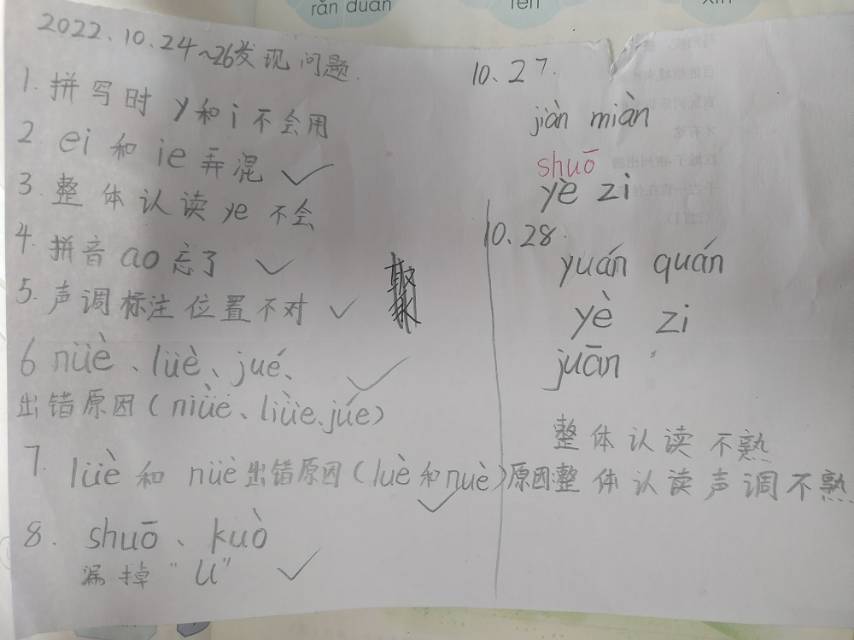 rǎn duàn
rèn
xìn
2022.10.24~26发现问题.
1. 拼写时 y和i不会用
2 ei 和 ie 弄混 ✓
3. 整体认读 ye 不会
4. 拼音 ao 忘了 ✓
5. 声调标注位置不对 ✓
6 nüè、lüè、jué、 ✓
出错原因(niǜe、liǜe、júe)
7. lüè 和 nüè 出错原因(luè 和 nuè)原因整体认读声调不熟 ✓
8. shuō、kuò
漏掉“u” ✓
10.27.
jiàn miàn
shuō
yè zi
10.28.
yuán quán
yè zi
juān
整体认读不熟